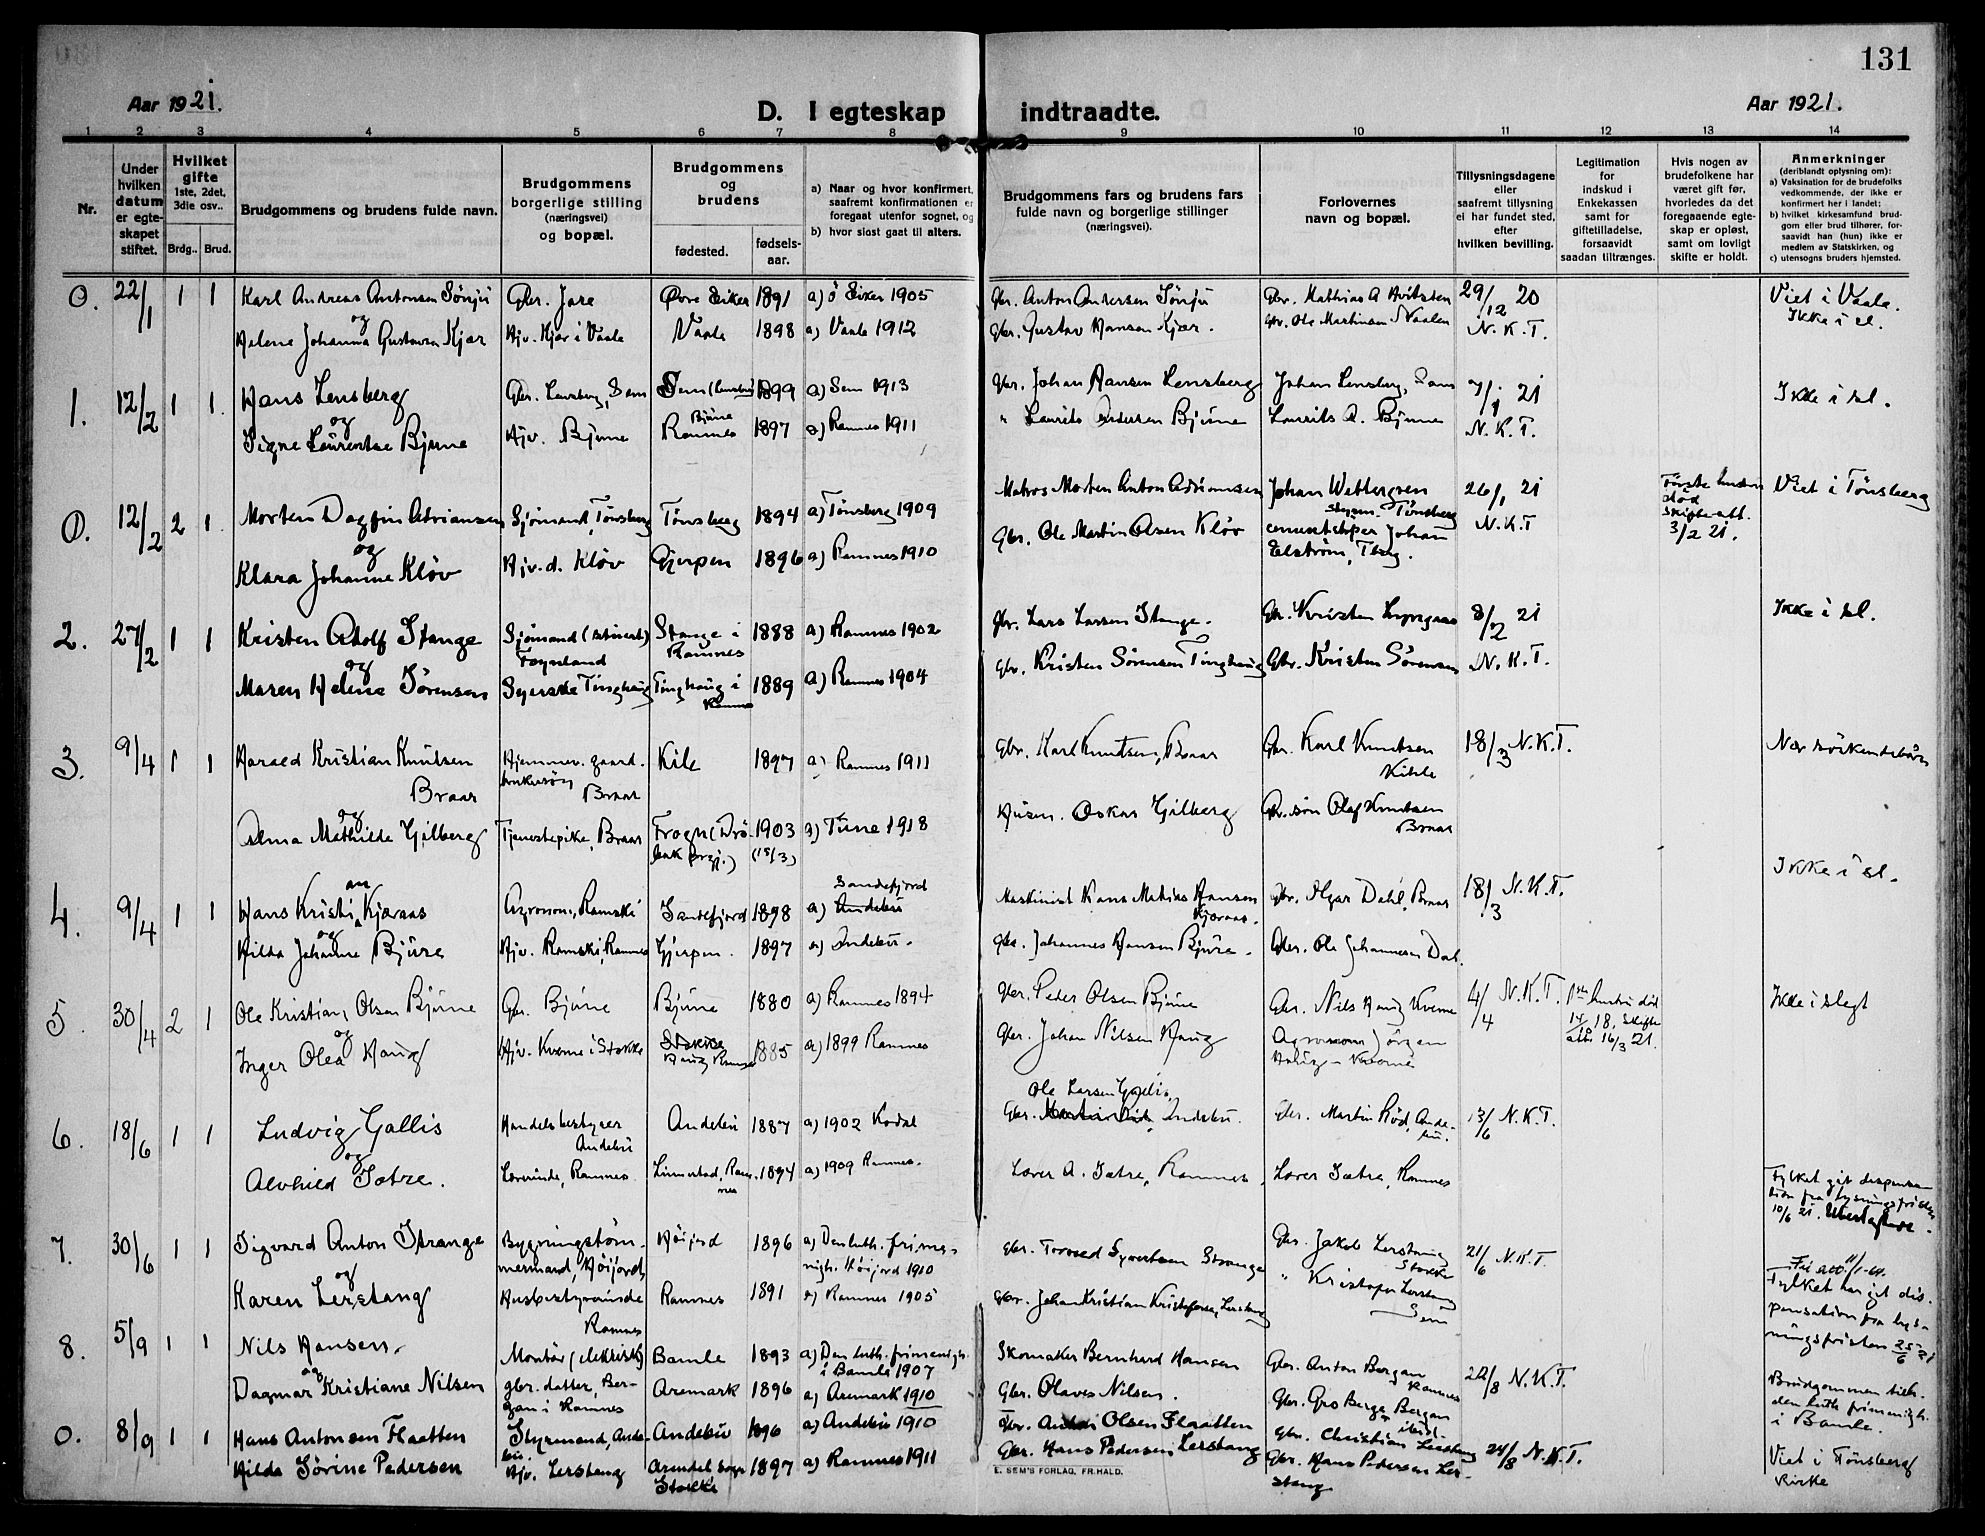 131
Aar 1921.
D. I egteskap indtraadte.
Aar 1921.
1 2 3 4 5 6 7 8 9 10 11 12 13 14
Nr.
Under hvilken datum er egteskapet stiftet.
Hvilket gifte 1ste, 2det, 3die osv..
Brdg.. Brud.
Brudgommens og brudens fulde navn.
Brudgommens borgerlige stilling (næringsvei) og bopæl.
Brudgommens og brudens
fødested. fødselsaar.
a) Naar og hvor konfirmert, saafremt konfirmationen er foregaat utenfor sognet, og
b) hvor sidst gaat til alters.
Brudgommens fars og brudens fars fulde navn og borgerlige stillinger (næringsvei).
Forlovernes navn og bopæl.
Tillysningsdagene eller saafremt tillysning ei har fundet sted, efter hvilken bevilling.
Legitimation for indskud i Enkekassen samt for giftetilladelse, forsaavidt saadan tiltrænges.
Hvis nogen av brudefolkene har været gift før, hvorledes da det foregaaende egteskap er opløst, samt om lovligt skifte er holdt.
Anmerkninger (deriblandt oplysning om):
a) Vaksination for de brudefolks vedkommende, der ikke er konfirmert her i landet;
b) hvilket kirkesamfund brudgom eller brud tilhører, forsaavidt han (hun) ikke er medlem av Statskirken, og
c) utensogns bruders hjemsted.
0. 22/1 1 1 Karl Andreas Antonsen Sønju Gbr. Jare Øvre Eiker 1891 a) ö Eiker 1905 Gbr. Anton Andersen Sønju Gbr. Mathias A 29/12 20 Viet i Vaale.
og
Helene Johanna Gustavsen Kjær Hjv. Kjær i Vaale Vaale 1898 a) Vaale 1912 Gbr. Gustav Hansen Kjær. Gbr. Ole Martinsen N. K. T. Ikke i sl.
1. 12/2 1 1. Hans Lensberg Gbr. Lensberg, Sem Sem 1899 a) Sem 1913 Gbr. Johan Hansen Lensberg Johan Lensberg, Sem 7/1 21 Ikke i sl.
og
Signe Laurentse Bjune Hjv. Bjune Bjune Ramnes 1897 a) Ramnes 1911 " Laurits Andersen Bjune Laurits A. Bjune N. K. T.
0. 12/2 2 1. Morten Dagfin Adriansen Sjømand, Tønsberg Tønsberg 1894 a) Tønsberg 1909 Matros Morten Anton Adriansen Johan Wettergren Tønsberg 26/1 21 Første hustru død skifte att. 3/2 21. Viet i Tønsberg
og
Klara Johanne Kløv Hjv. d. Kløv Gjerpen 1896 a) Ramnes 1910 Gbr. Ole Martin Olsen Kløv Johan Elstrøm, Tbg. N. K. T
2. 27/2 1 1 Kristen Adolf Stange Sjømand (stuert) Føynland Stange i Ramnes 1888 a) Ramnes 1902 Gbr. Lars Larsen Stange. Gbr. Kristen 8/2 21 Ikke i sl.
og
Maren Helene Sørensen Syerske Tinghaug Tinghaug i Ramnes 1889 a) Ramnes 1904 Gbr. Kristen Sørensen Tinghaug Gbr. Kristen Sørensen N. K. T.
3. 9/4 1 1 Harald Kristian Knutsen Braar Hjemmev. gaardbrukersøn Braar Kile 1897 a) Ramnes 1911 Gbr. Karl Knutsen, Braar Gbr. Karl Knutsen 18/3 N.K.T. Nær søskendebarn
og
Alma Mathilde Gjilberg Tjenestepike, Braar Frogn (Drøbak prgj.) 1903 (15/3) a) Tune 1918 Husm. Oskar Gjilberg Gbr. søn Olaf Knutsen Braar
4. 9/4 1 1 Hans Kristian Kjæraas Agronom, Ramski Sandefjord 1898 a) Sandefjord Maskinist Hans Mathias Hansen Kjæraas. Gbr. Olgar Dahl, Braar 18/3 N.K.T. Ikke i sl.
og
Hilda Johanne Bjure Hjv. Ramski, Ramnes Gjerpen. 1897 a) Andebu. Gbr. Johannes Hansen Bjure. Gbr. Ole Johannesen Dal.
5. 30/4 2 1 Ole Kristian Olsen Bjune Gbr. Bjune Bjune 1880 a) Ramnes 1894 Gbr. Peder Olsen Bjune Gbr. Nils Haug Kverne 4/4 N.K.T. 1ste hustru død 14/10 18, Skifte att. 16/3 21. Ikke i slegt
og
Inger Olea Haug Hjv. Kverne i Stokke Haug Ramnes 1885 a) 1899 Ramnes Gbr. Johan Nilsen Haug Agronom Jörgen Haug - Kverne
6. 18/6 1 1 Ludvig Gallis Handelsbestyrer Andebu Andebu 1887 a) 1902 Kodal Ole Larsen Gbr. Andebu. Gbr. Martin Rød, Andebu. 13/6 N.K.T.
og
Alvhild Sætre. Lærerinde, Ramnes Linnestad, Ramnes 1894 a) 1909 Ramnes. Lærer A. Sætre, Ramnes Lærer Sætre, Ramnes
Fylket git dispensation fra lysningsfristen 10/6 21.
7. 30/6 1 1 Sigvard Anton Strange Bygningstømmermand, Høijord Høijord 1896 a) Den luth. frimenigh. Høijord 1910 Gbr. Tormod Syvertsen Strange Gbr. Jakob Lerstang Stokke 21/6 N.K.T.
og
Karen Lerstang Husbestyrerinde Ramnes Ramnes 1891 a) Ramnes 1905 Gbr. Johan Kristian Kristofersen Lerstang " Kristofer Lerstang Sem
Fylket har git dispensation fra lysningsfristen 25/6 21
8. 5/9 1 1 Nils Hansen. Montør (elektrisk) Bamle 1893 a) Den luth. frimenigh. i Bamle 1907 Skomaker Bernhard Hansen Gbr. Anton Bergan Ramnes 22/8 N.K.T.
og
Dagmar Kristiane Nilsen gbr. datter, Bergan i Ramnes Aremark 1896 a) Aremark 1910 Gbr. Olaves Nilsen. Gbr. Gro Berge Bergan ibid.
Brudgommen tilh. den luth frimenigh. i Bamle.
0. 8/9 1 1 Hans Antonsen Flaatten Styrmand, Andebu. Andebu 1896 a) Andebu 1910 Gbr. Olsen Flaatten Gbr. Christian Lerstang 24/8 N.K.T.
Hilda Sörine Pedersen Hjv. Lerstang Arendal sogn Stokke 1897 a) Ramnes 1911 Gbr. Hans Pedersen Lerstang Gbr. Hans Pedersen Lerstang Viet i Tønsberg Kirke
E. SEM'S FORLAG, FR.HALD.